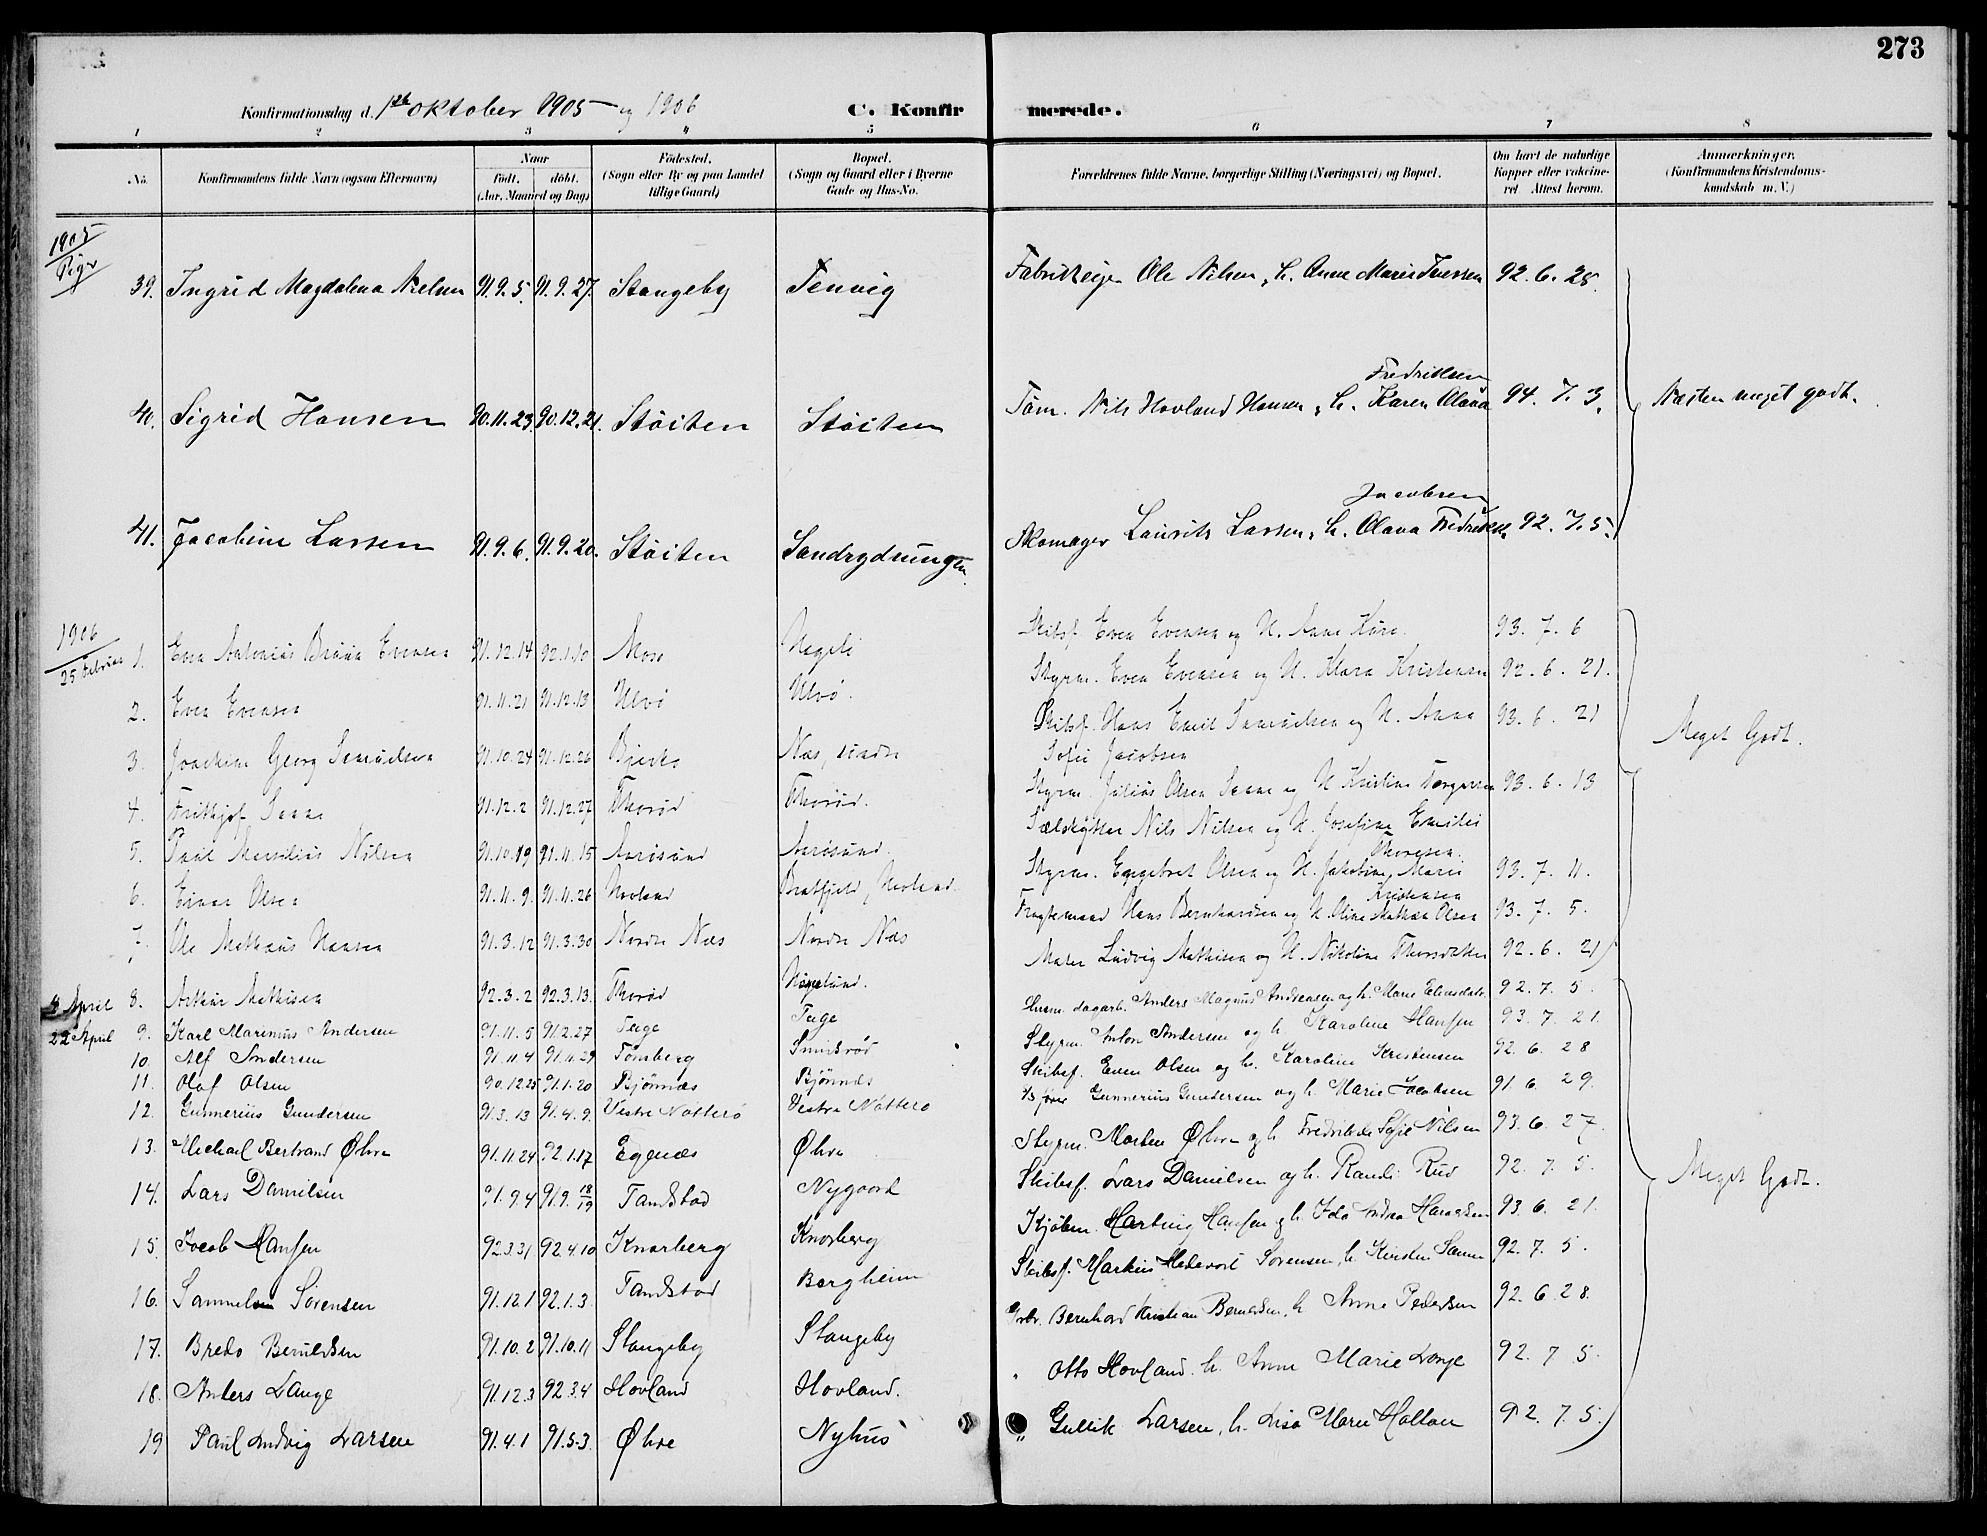 273
Konfirmationsdag d. 1ste oktober 1905 og 1906 C. Konfirmerede.
1 2 3 4 5 6 7 8
No. Konfirmandens fulde Navn (ogsaa Efternavn) Naar født. døbt. (Aar, Maaned og Dag) Fødested. (Sogn eller By og paa Landet tillige Gaard) Bopæl. (Sogn og Gaard eller i Byerne Gade og Hus-No. Forældrenes fulde Navne, borgerlige Stilling (Næringsvei) og Bopæl. Om havt de naturlige Kopper eller vakcineret Attest herom. Anmærkninger. (Konfirmandens Kristendomskundskab m. V.)
1905
Piger
39. Ingrid Magdalena Nielsen 91.9.5. 91.9.27. Stangeby Tenvig Fabrikeier Ole Nilsen, h. Anne Marie Iversen 92.6.25.
40. Sigrid Hansen 90.11.23. 90.12.21. Støiten Støiten Tøm. Nils Hovland Hansen, h. Karen Olava Fredriksen 94.7.3. Næsten meget godt.
41. Jacobine Larsen 91.9.6. 91.9.20. Støiten Sandrydningen Skomager Laurits Larsen, h. Olava Fredrikke Jacobsen 92.7.5.
1906
25 Februar
1. Even Antonius Evensen 91.12.14 92.1.10 Moss Skibsf. Even Evensen og H. Anne 93.7.6
2. Even Evensen 91.11.21 91.12.13 Ulvø Ulvø. Styrm. Even Evensen og H. Klara Kristensen 92.6.21.
3. Joachim Georg Samuelsen 91.10.24 91.12.26 Næs, søndre Skibsf. Hans Emil Samuelsen og H. Anna Sofie Jacobsen 93.6.21 Meget Godt.
4. Frithjof Sanne 91.12.2 91.12.27 Thorød Thorød. Styrm. Julius Olsen Sanne og H. Kristine Torgersen 93.6.13
5. Paul Marsilius Nilsen 91.10.19 91.11.15 Aarøsund Aarøsund. Sælskytter Nils Nilsen og H. Josefine Emilie Thoresen.
6. Einar Olsen 91.11.9. 91.11.26 Hovland Bratfjeld, Hovland. Styrm. Engebret Olsen og H. Jakobine Marie Kristensen 93.7.11.
7. Ole Mathæus Hansen 91.3.12 91.3.30 Nordre Næs Nordre Næs Fragtemand Hans Bernhardsen og H. Oline Mathea Olsen 93.7.5.
8. Arthur Mathisen 92.3.2 92.3.13. Thorød Maler Ludvig Mathisen og H. Nikoline Thorsdatter 92.6.21
April
22 April 9. Karl Marinius Andersen 91.11.5 91.2.27 Teige Teige dagarb. Anders Magnus Andreasen og h. Marie Eliasdatr. 92.7.5.
10. Alf Andersen 91.11.4 91.11.29 Tønsberg Smidsrød Styrm. Anton Andersen og h. Karoline Hansen 93.7.21
11. Olaf Olsen 90.12.25 91.1.20 Bjønnes Bjønnes Skibsf. Even Olsen og h. Karoline Kristensen 92.6.28
12. Gunnerius Gundersen 91.3.13 91.4.9. Vestre Nøtterø Vestre Nøtterø Gunnerius Gundersen og h. Marie Jacobsen 91.6.29.
13. Michael Bertrand Øhre 91.11.24 92.1.17 Egenæs Øhre Styrm. Morten Øhre og h. Fredrikke Sofie Nilsen 93.6.27.
14. Lars Danielsen 91.9.4 91.9.18/19 Tandstad Nygaard Skibsf. Lars Danielsen og h. Randi Rud 92.7.5. Meget Godt.
15. Jacob Hansen 92.3.31 92.4.10 Knarberg Knarberg Kjøbm. Hartvig Hansen og h. Ida Andrea 93.6.21.
16. Samuel Sørensen 91.12.1 92.1.3. Tandstad Borgheim Skibsf. Markus Sørensen, h. Kirsten Sanne 92.7.5.
17. Bredo Berntsen 91.10.2 91.10.11 Stangeby Stangeby Bernhard Kristian Berntsen, h. Anne Pedersen 92.6.28.
18. Anders Lange 91.12.3 92.3.4 Hovland Hovland. " Otto Hovland. h. Anne Marie Lange 92.7.5.
19 Paul Ludvig Larsen 91.4.1 91.5.3. Øhre Nyhus " Gullik Larsen, h. Lisa Marie 92.7.5.